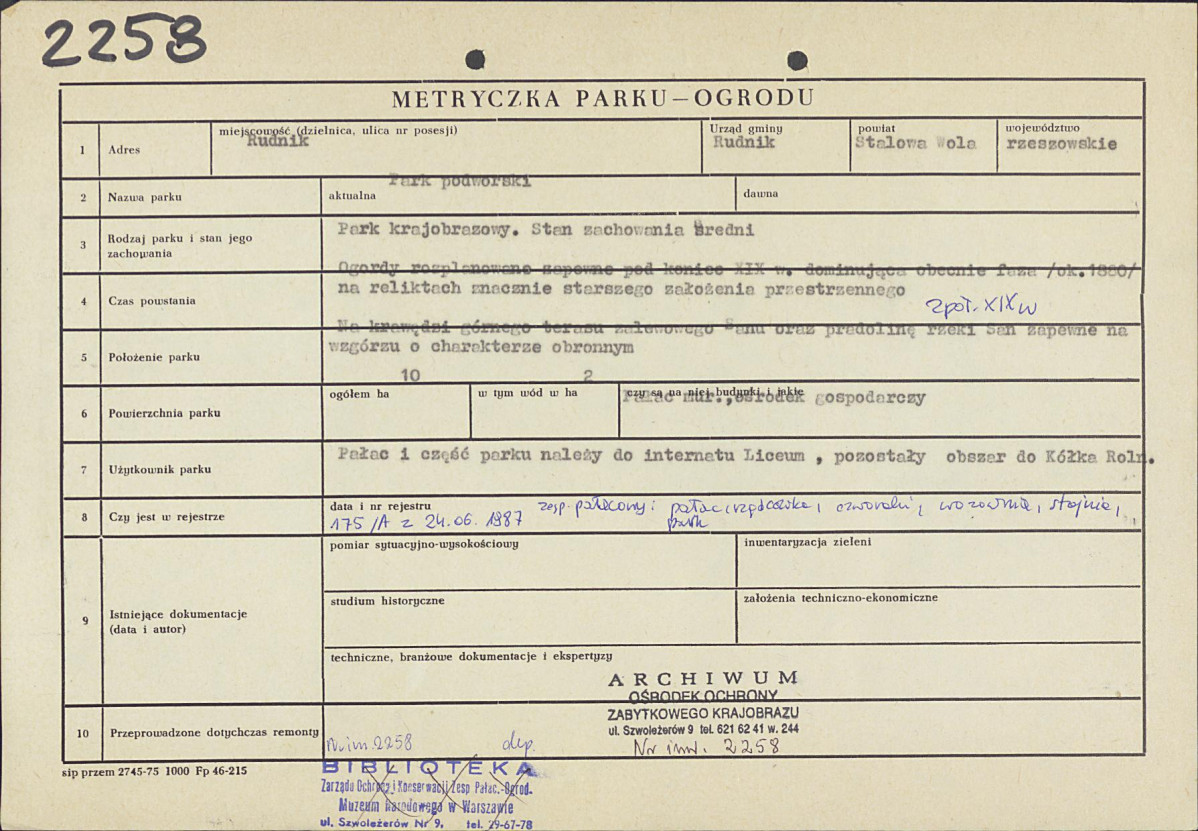 2258
METRYCZKA PARKU—OGRODU
1 Adres
miejscowość (dzielnica, ulica nr posesji)
Rudnik
Urząd gminy
Rudnik
powiat
Stalowa Wola
województwo
rzeszowskie
2 Nazwa parku
aktualna
Park podworski
dawna
3 Rodzaj parku i stan jego
zachowania
Park krajobrazowy. Stan zachowania średni
4 Czas powstania
Ogordy rozplanowane zapewne pod koniec XIX w. dominująca obecnie faza /ok.1880/
na reliktach znacznie starszego założenia przestrzennego
2 poł. XIX w
5 Położenie parku
Na krawędzi górnego terasu zalewowego Sanu oraz pradolinę rzeki San zapewne na
wzgórzu o charakterze obronnym
6 Powierzchnia parku
ogółem ha
10
w tym wód w ha
2
czy są na niej budynki i jakie
Pałac mur., ośrodek gospodarczy
7 Użytkownik parku
Pałac i część parku należy do internatu Liceum , pozostały obszar do Kółka Roln.
8 Czy jest w rejestrze
data i nr rejestru
175/A z 24.06.1987
zesp. pałacowy: pałac, rządcówka, czworaki, wozownia, stajnia,
park
9 Istniejące dokumentacje
(data i autor)
pomiar sytuacyjno-wysokościowy
inwentaryzacja zieleni
studium historyczne
założenia techniczno-ekonomiczne
techniczne, branżowe dokumentacje i ekspertyzy
ARCHIWUM
OŚRODEK OCHRONY
ZABYTKOWEGO KRAJOBRAZU
ul. Szwoleżerów 9 tel. 621 62 41 w. 244
Nr inw. 2258
10 Przeprowadzone dotychczas remonty
Nr inw. 2258 dep.
sip przem 2745-75 1000 Fp 46-215
BIBLIOTEKA
Zarządu Ochrony i Konserwacji Zesp. Pałac.-Ogrod.
Muzeum Narodowego w Warszawie
ul. Szwoleżerów Nr 9, tel. 29-67-78